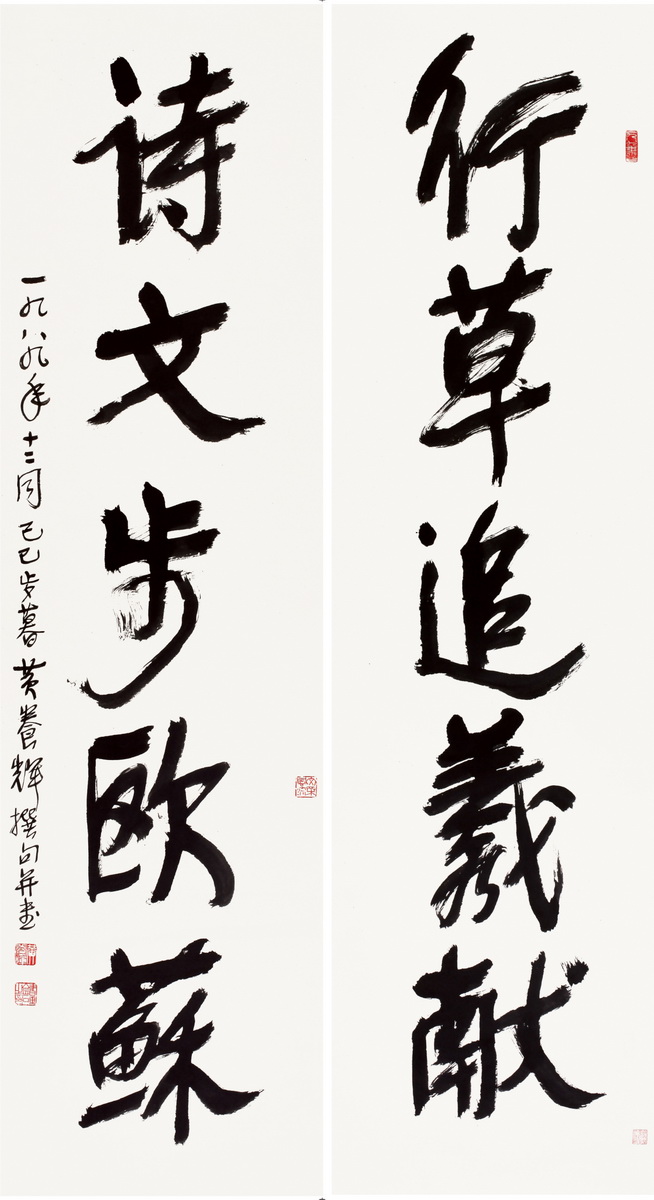 行草追羲献
诗文步欧苏
一九八九年十二月己巳岁暮黄养辉撰句并书